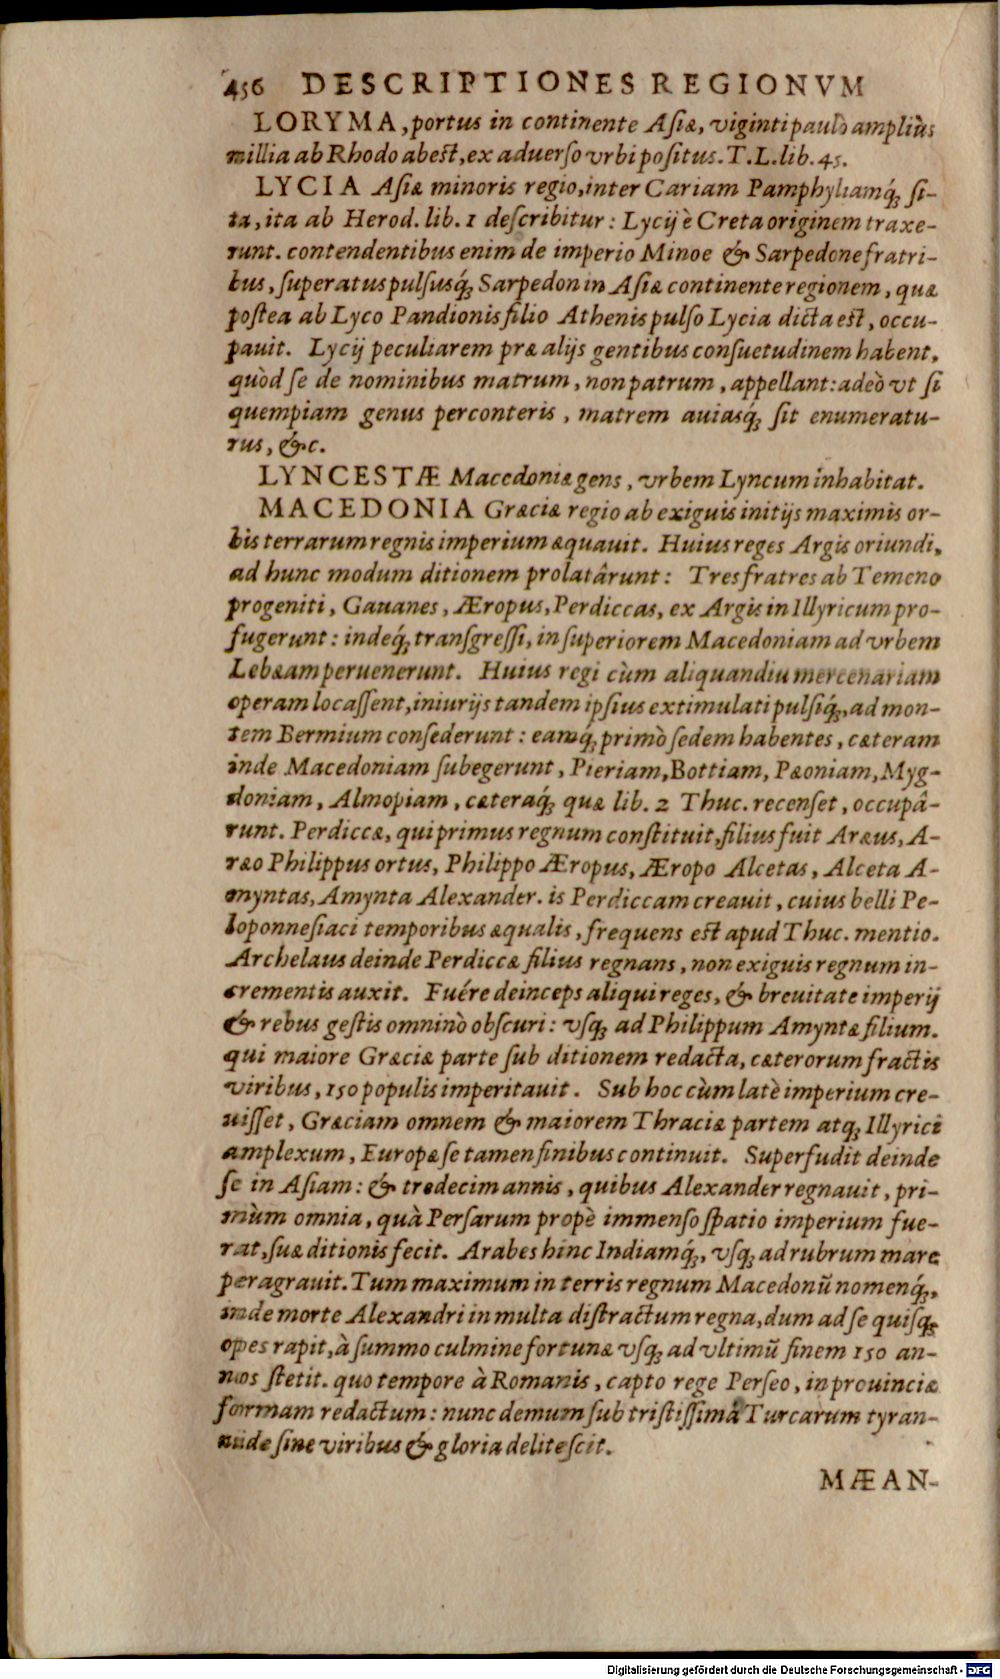 456 DESCRIPTIONES REGIONVM
LORYMA, portus in continente Asiæ, viginti paulò ampliùs
millia ab Rhodo abest, ex aduerso vrbi positus. T. L. lib. 45.
LYCIA Asiæ minoris regio, inter Cariam Pamphyliamq́; si-
ta, ita ab Herod. lib. 1 describitur: Lycij è Creta originem traxe-
runt. contendentibus enim de imperio Minoe & Sarpedone fratri-
bus, superatus pulsusq́; Sarpedon in Asiæ continente regionem, quæ
postea ab Lyco Pandionis filio Athenis pulso Lycia dicta est, occu-
pauit. Lycij peculiarem præ alijs gentibus consuetudinem habent,
quòd se de nominibus matrum, non patrum, appellant: adeò vt si
quempiam genus perconteris, matrem auiasq́; sit enumeratu-
rus, &c.
LYNCESTÆ Macedoniæ gens, vrbem Lyncum inhabitat.
MACEDONIA Græciæ regio ab exiguis initijs maximis or-
bis terrarum regnis imperium æquauit. Huius reges Argis oriundi,
ad hunc modum ditionem prolatârunt: Tres fratres ab Temeno
progeniti, Gauanes, Æropus, Perdiccas, ex Argis in Illyricum pro-
fugerunt: indeq́; transgressi, in superiorem Macedoniam ad vrbem
Lebæam peruenerunt. Huius regi cùm aliquandiu mercenariam
operam locassent, iniurijs tandem ipsius extimulati pulsiq́;, ad mon-
tem Bermium consederunt: eamq́; primò sedem habentes, cæteram
inde Macedoniam subegerunt, Pieriam, Bottiam, Pæoniam, Myg-
doniam, Almopiam, cæteraq́; quæ lib. 2 Thuc. recenset, occupâ-
runt. Perdiccæ, qui primus regnum constituit, filius fuit Aræus, A-
ræo Philippus ortus, Philippo Æropus, Æropo Alcetas, Alceta A-
myntas, Amynta Alexander. is Perdiccam creauit, cuius belli Pe-
loponnesiaci temporibus æqualis, frequens est apud Thuc. mentio.
Archelaus deinde Perdiccæ filius regnans, non exiguis regnum in-
crementis auxit. Fuére deinceps aliqui reges, & breuitate imperij
& rebus gestis omninò obscuri: vsq; ad Philippum Amyntæ filium.
qui maiore Græciæ parte sub ditionem redacta, cæterorum fractis
viribus, 150 populis imperitauit. Sub hoc cùm latè imperium cre-
uisset, Græciam omnem & maiorem Thraciæ partem atq; Illyrici
amplexum, Europæ se tamen finibus continuit. Superfudit deinde
se in Asiam: & tredecim annis, quibus Alexander regnauit, pri-
mùm omnia, quà Persarum propè immenso spatio imperium fue-
rat, suæ ditionis fecit. Arabes hinc Indiamq́;, vsq; ad rubrum mare
peragrauit. Tum maximum in terris regnum Macedonũ nomenq́;,
inde morte Alexandri in multa distractum regna, dum ad se quisq;
opes rapit, à summo culmine fortunæ vsq; ad vltimũ finem 150 an-
nos stetit. quo tempore à Romanis, capto rege Perseo, in prouinciæ
formam redactum: nunc demum sub tristissimâ Turcarum tyran-
nide sine viribus & gloria delitescit.
MÆAN-
Digitalisierung gefördert durch die Deutsche Forschungsgemeinschaft - DFG